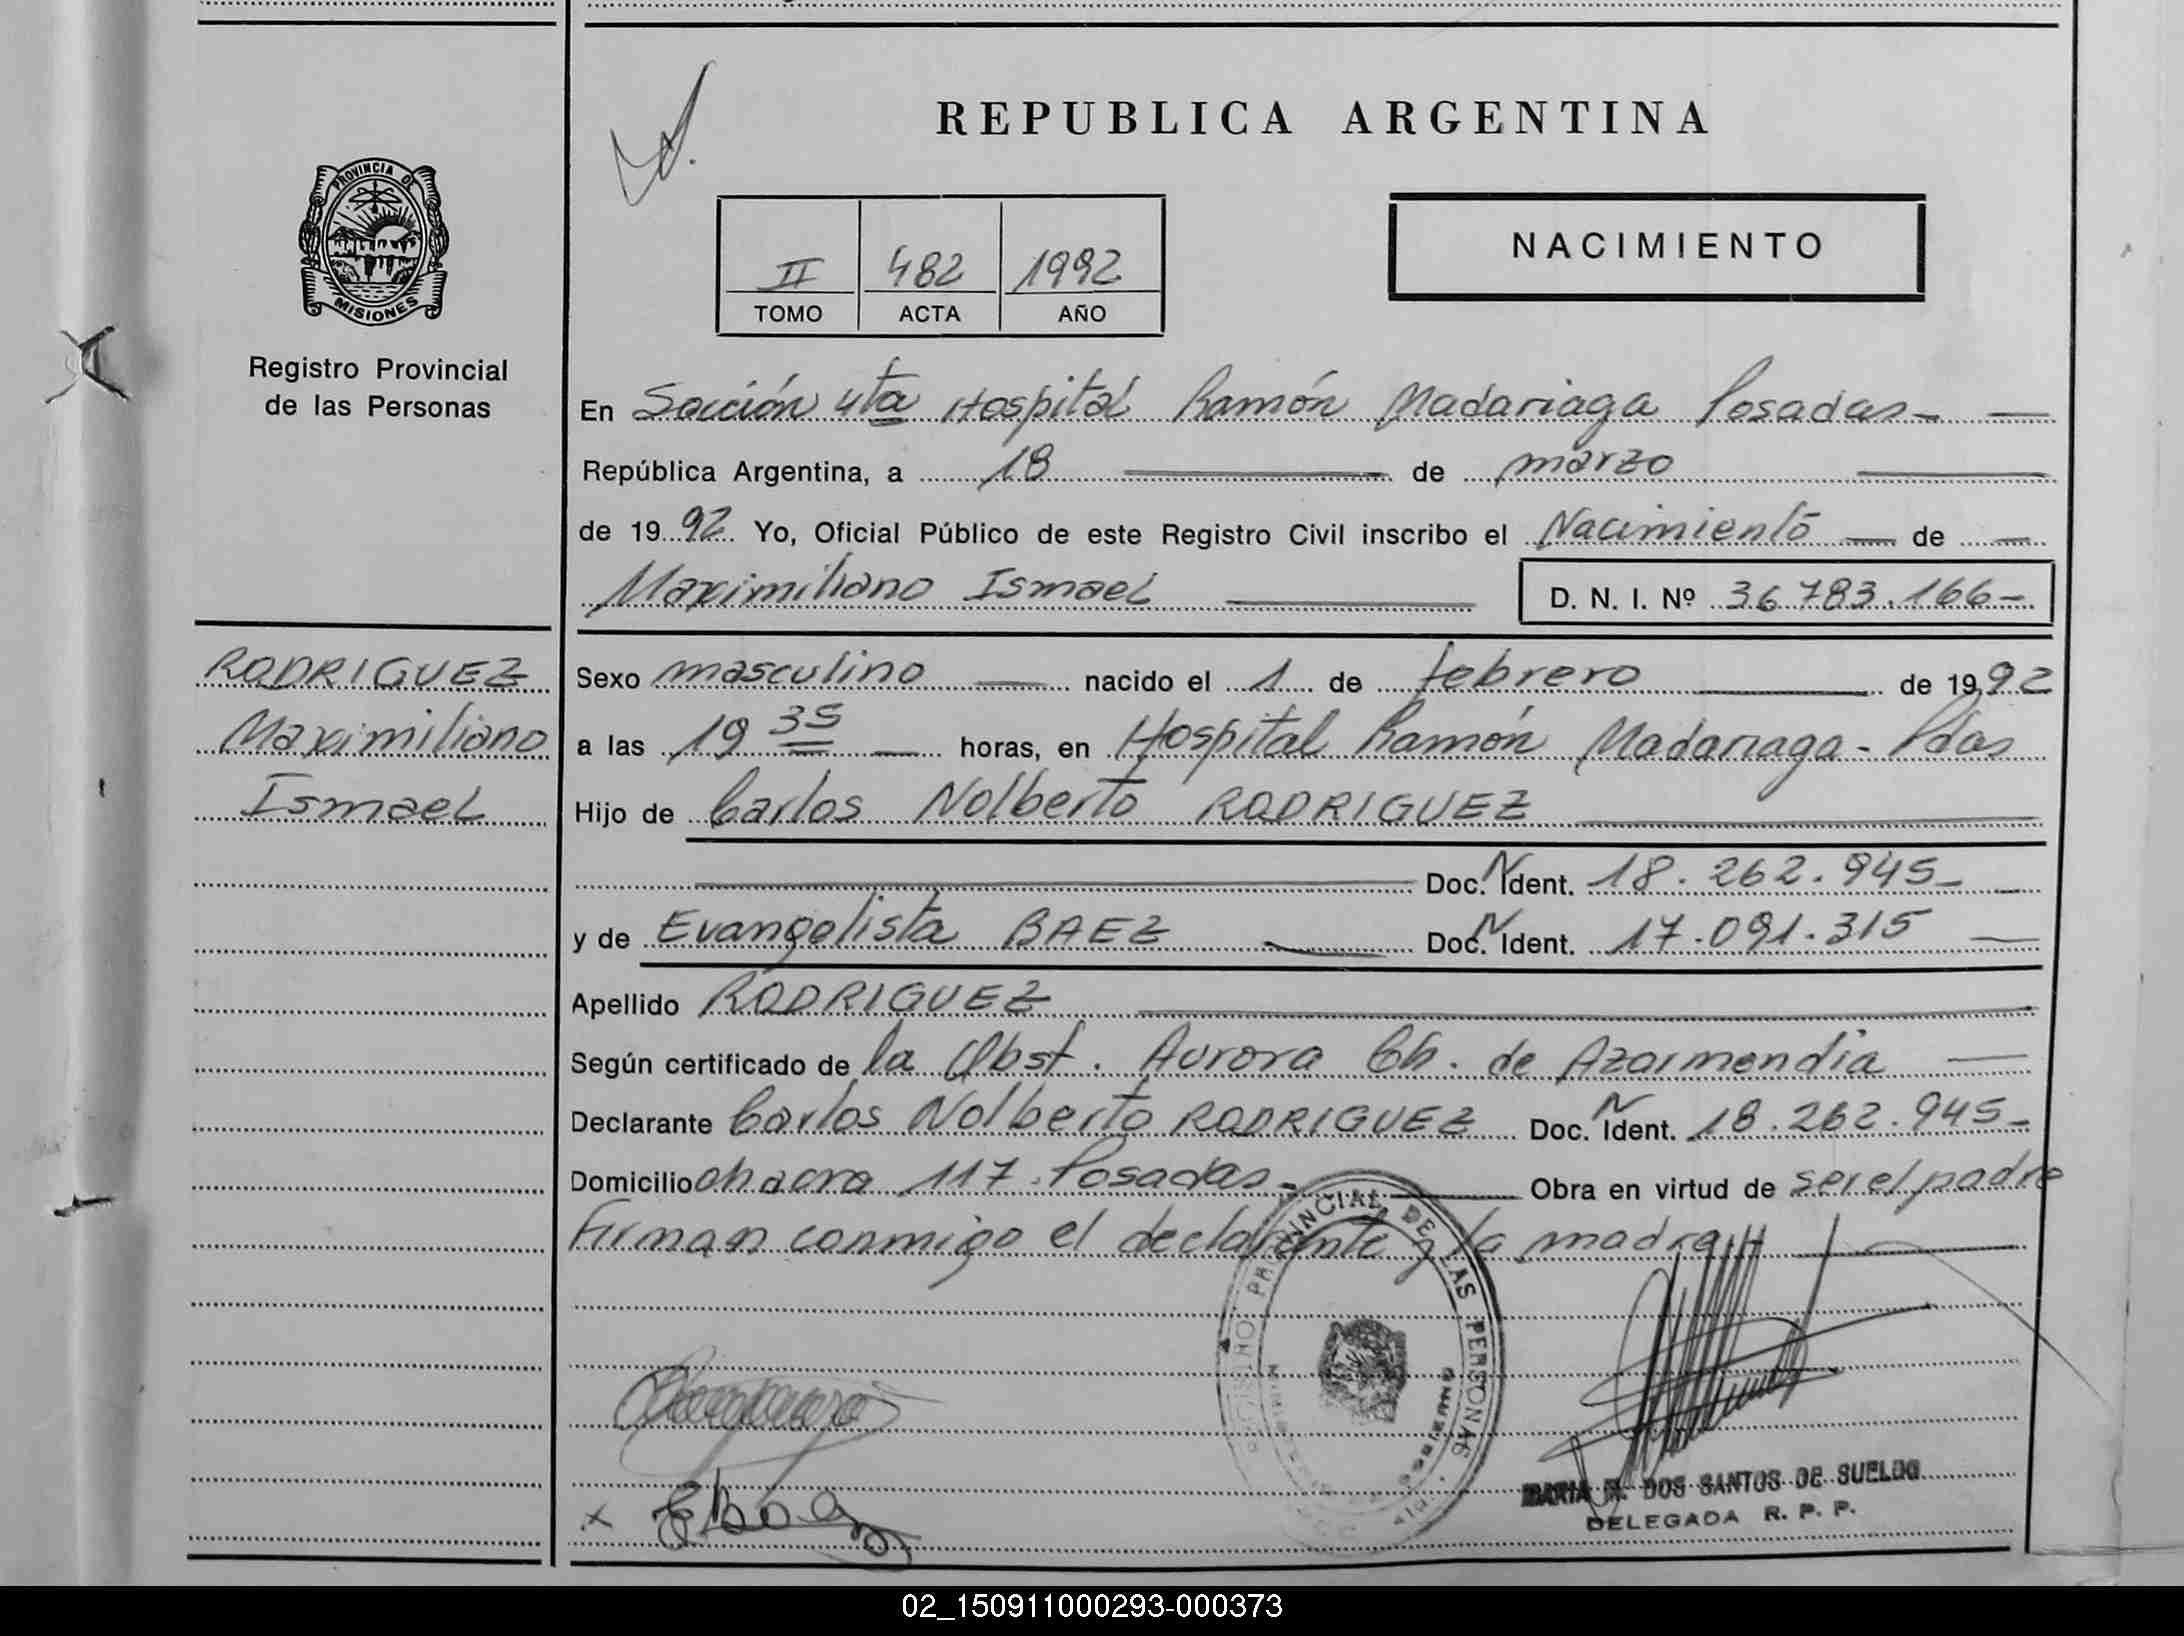 REPUBLICA ARGENTINA
PROVINCIA DE
MISIONES
Registro Provincial
de las Personas
II 482 1992
TOMO ACTA AÑO
NACIMIENTO
En Sección 4ta Hospital Ramón Madariaga Posadas-
República Argentina, a 18 de marzo
de 1992 Yo, Oficial Público de este Registro Civil inscribo el Nacimiento de
Maximiliano Ismael D. N. I. Nº 36783.166-
RODRIGUEZ
Maximiliano
Ismael
Sexo masculino nacido el 1 de febrero de 1992
a las 19 35 horas, en Hospital Ramón Madariaga- Pdas
Hijo de Carlos Nolberto RODRIGUEZ
Doc. N Ident. 18.262.945-
y de Evangelista BAEZ Doc. N Ident. 17.091.315
Apellido RODRIGUEZ
Según certificado de la Obst. Aurora Ch. de Azarmendia
Declarante Carlos Nolberto RODRIGUEZ Doc. N Ident. 18.262.945-
Domicilio chacra 117. Posadas- Obra en virtud de ser el padre
Firman conmigo el declarante y la madre
REGISTRO PROVINCIAL DE LAS PERSONAS
MARIA DOS SANTOS DE SUELDO
DELEGADA R. P. P.
02_150911000293-000373